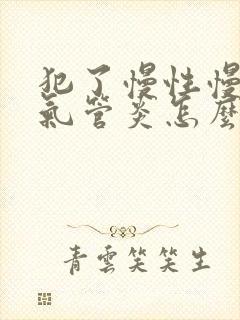 犯了慢性慢
氣管炎怎麼
青雲笑笑生